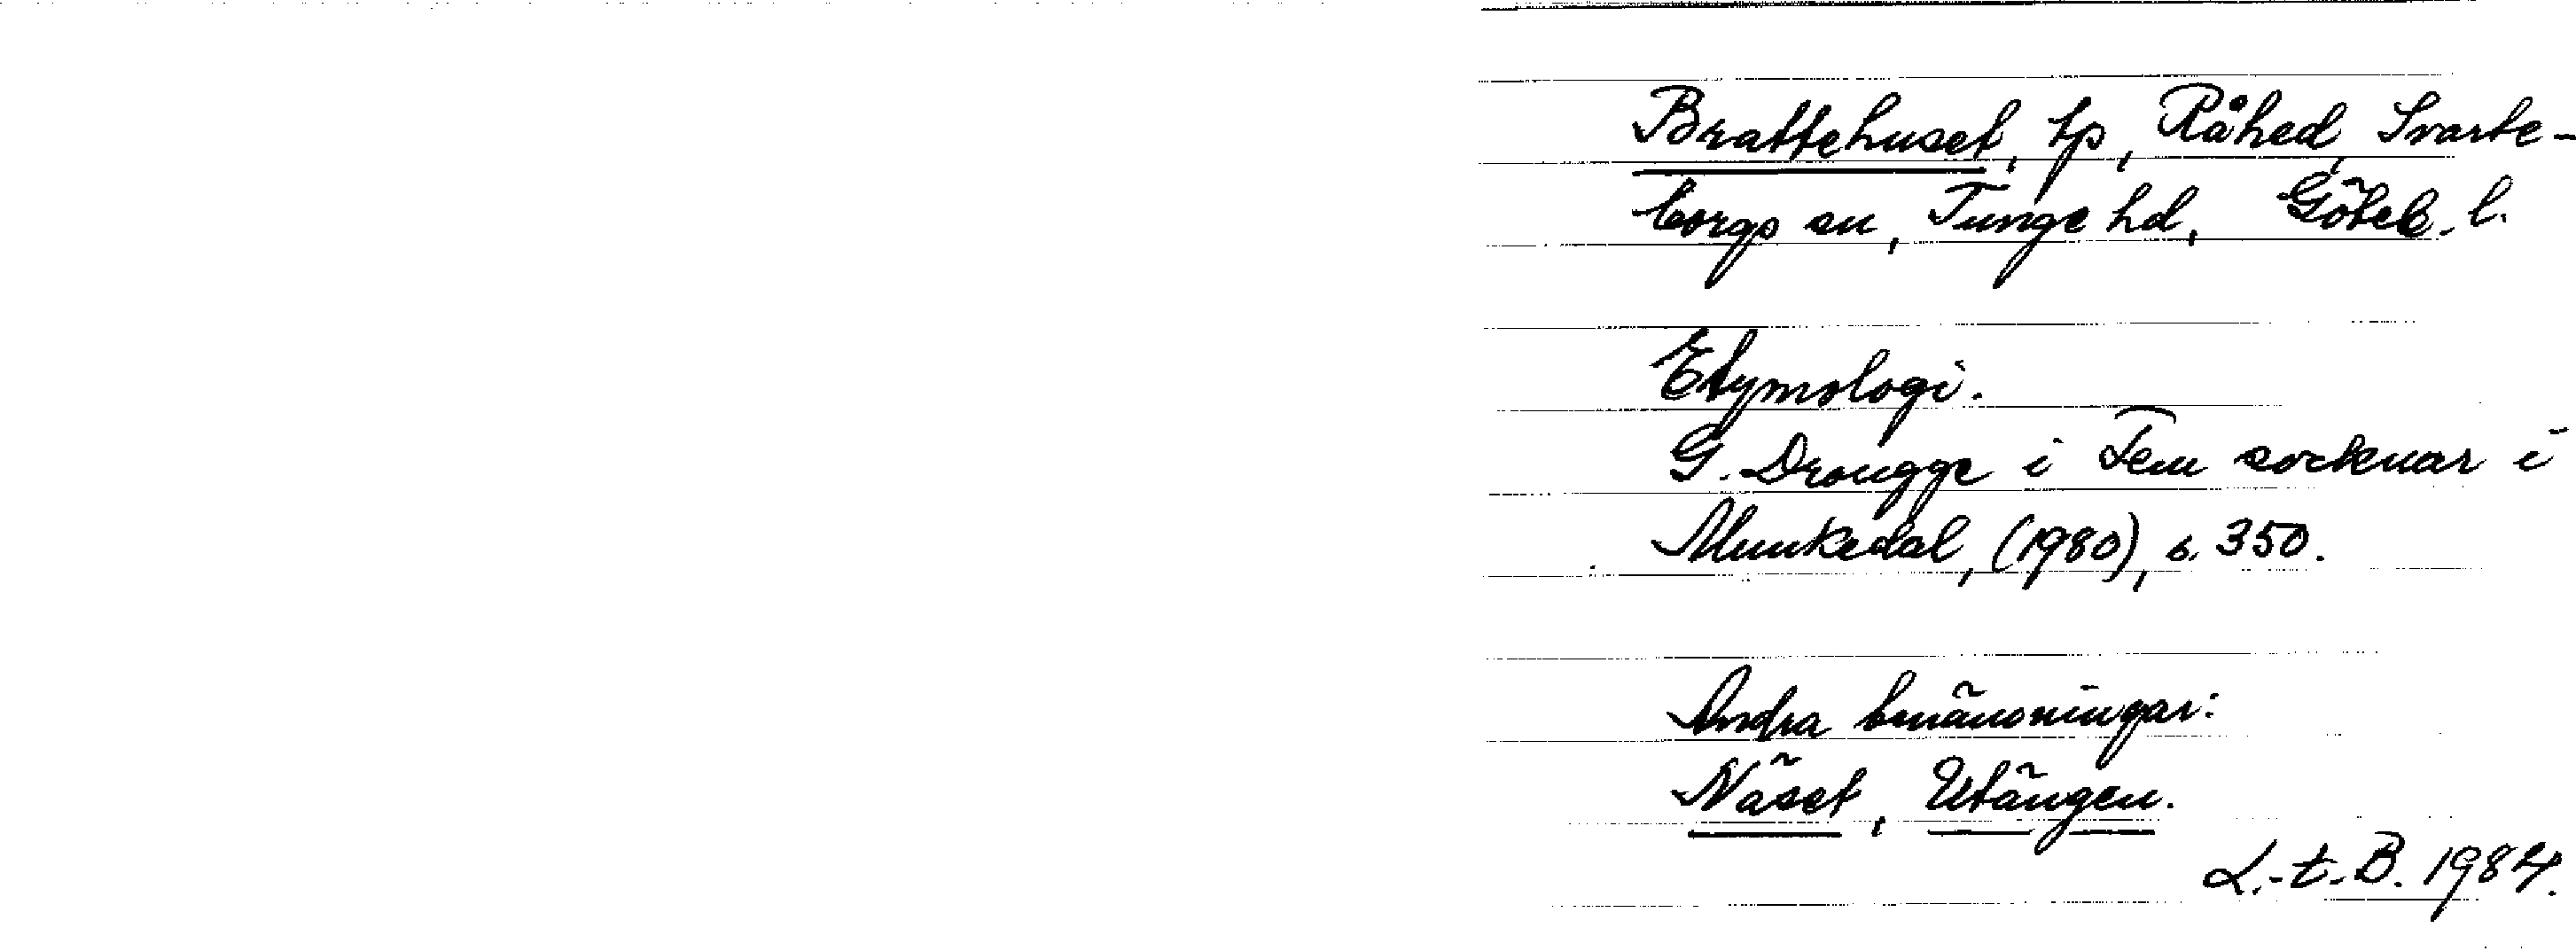 Brattehuset, tp, Råhed, Svarte-
borgs sn, Tunge hd, Göteb. l.
Etymologi.
G. Drougge i Fem socknar i
Munkedal, (1980), s. 350.
Andra benämningar:
Näset, Utängen.
L.-t.-B. 1984.